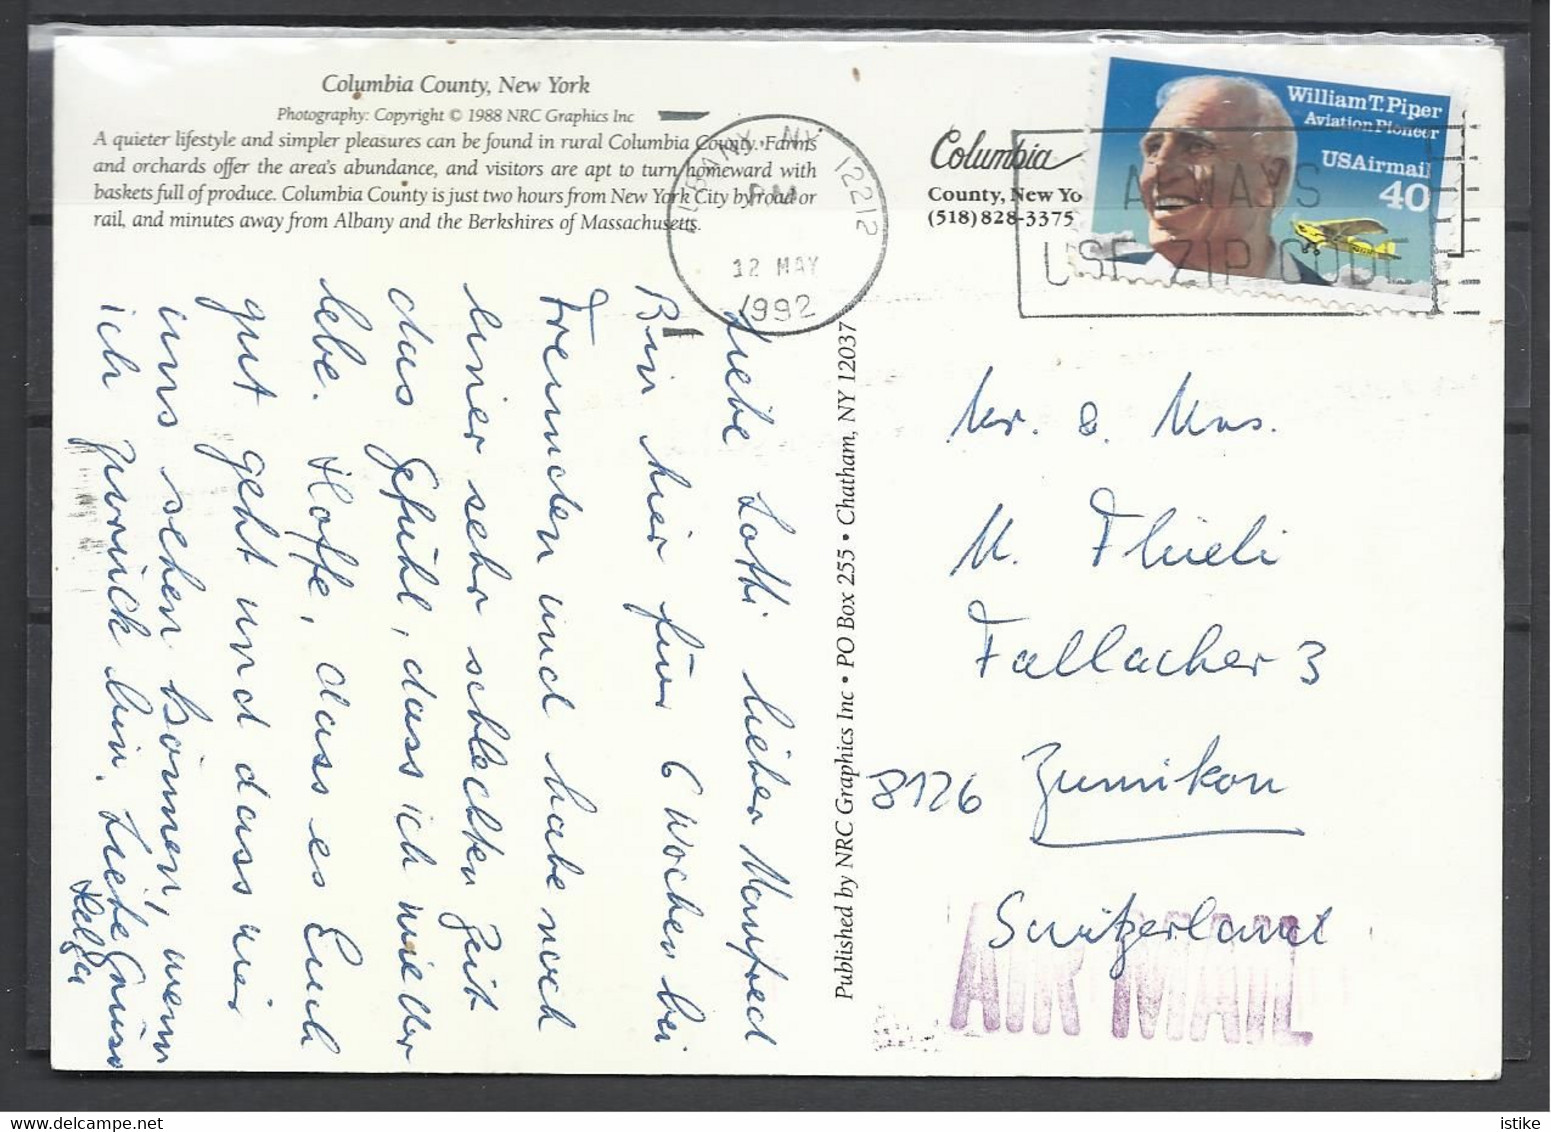 Columbia County, New York
Photography: Copyright © 1988 NRC Graphics Inc
A quieter lifestyle and simpler pleasures can be found in rural Columbia County. Farms
and orchards offer the area's abundance, and visitors are apt to turn homeward with
baskets full of produce. Columbia County is just two hours from New York City by road or
rail, and minutes away from Albany and the Berkshires of Massachusetts.
Columbia
County, New Yo
(518) 828-3375
ALBANY NY 12212
PM
12 MAY
1992
William T. Piper
Aviation Pioneer
USAirmail
40
ALWAYS
USE ZIP CODE
Liebe Lotti lieber Manfred
Bin hier für 6 Wochen bei
Freunden und habe nach
einer sehr schlechten Zeit
das Gefühl, dass ich wieder
lebe. Hoffe, dass es Euch
gut geht und dass wir
uns sehen können, wenn
ich zurück bin. Liebe Grüsse
Helga
Published by NRC Graphics Inc • PO Box 255 • Chatham, NY 12037
Mr. & Mrs.
M. Flüeli
Fallacher 3
8126 Zumikon
Switzerland
AIR MAIL
istike